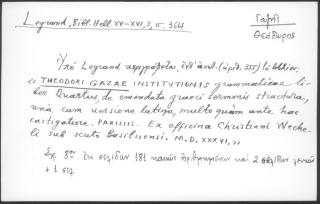 Legrand, Bibl. Hell XV-XVI, 3, σ. 364
Γαζῆς
Θεόδωρος
Ὑπὸ Legrand περιγράφεται, ἐπ' ἀνωλ. (ἀριθ. 355) τὸ βιβλίον;
« THEODORI GAZAE INSTITUTIONIS grammaticae li-
ber Quartus, de emendata graeci sermonis structura,
unà cum versione latina, multo quàm ante hac
castigatiore. PARISIIS. Ex officina Christiani Weche-
li sub scuto Basiliensi. M.D.XXXVI, »
Σχ. 8ον. ἐκ σελίδων 181 κανον. ἠριθμημένων καὶ 2 σελίδων λευκῶν
+ 1 σελ.